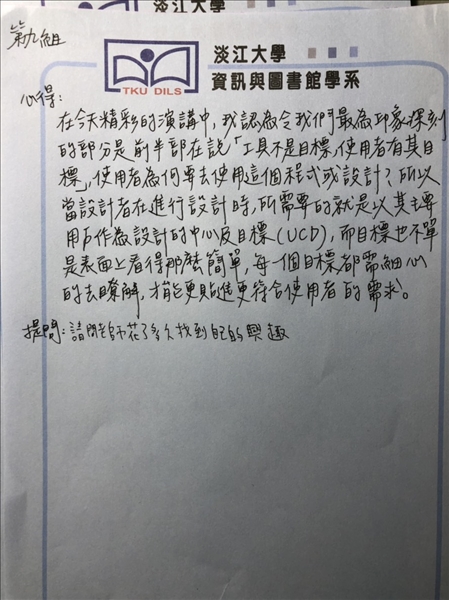 第九組
淡江大學
TKU DILS
資訊與圖書館學系
心得:
在今天精彩的演講中,我認為令我們最為印象深刻
的部分是前半部在說「工具不是目標,使用者有其目
標」,使用者為何要去使用這個程式或設計?所以
當設計者在進行設計時,所需要的就是以其主要
用戶作為設計的中心及目標(UCD),而目標也不單
是表面上看得那麼簡單,每一個目標都需細心
的去瞭解,才能更貼進更符合使用者的需求。
提問:請問老師花了多久找到自己的興趣